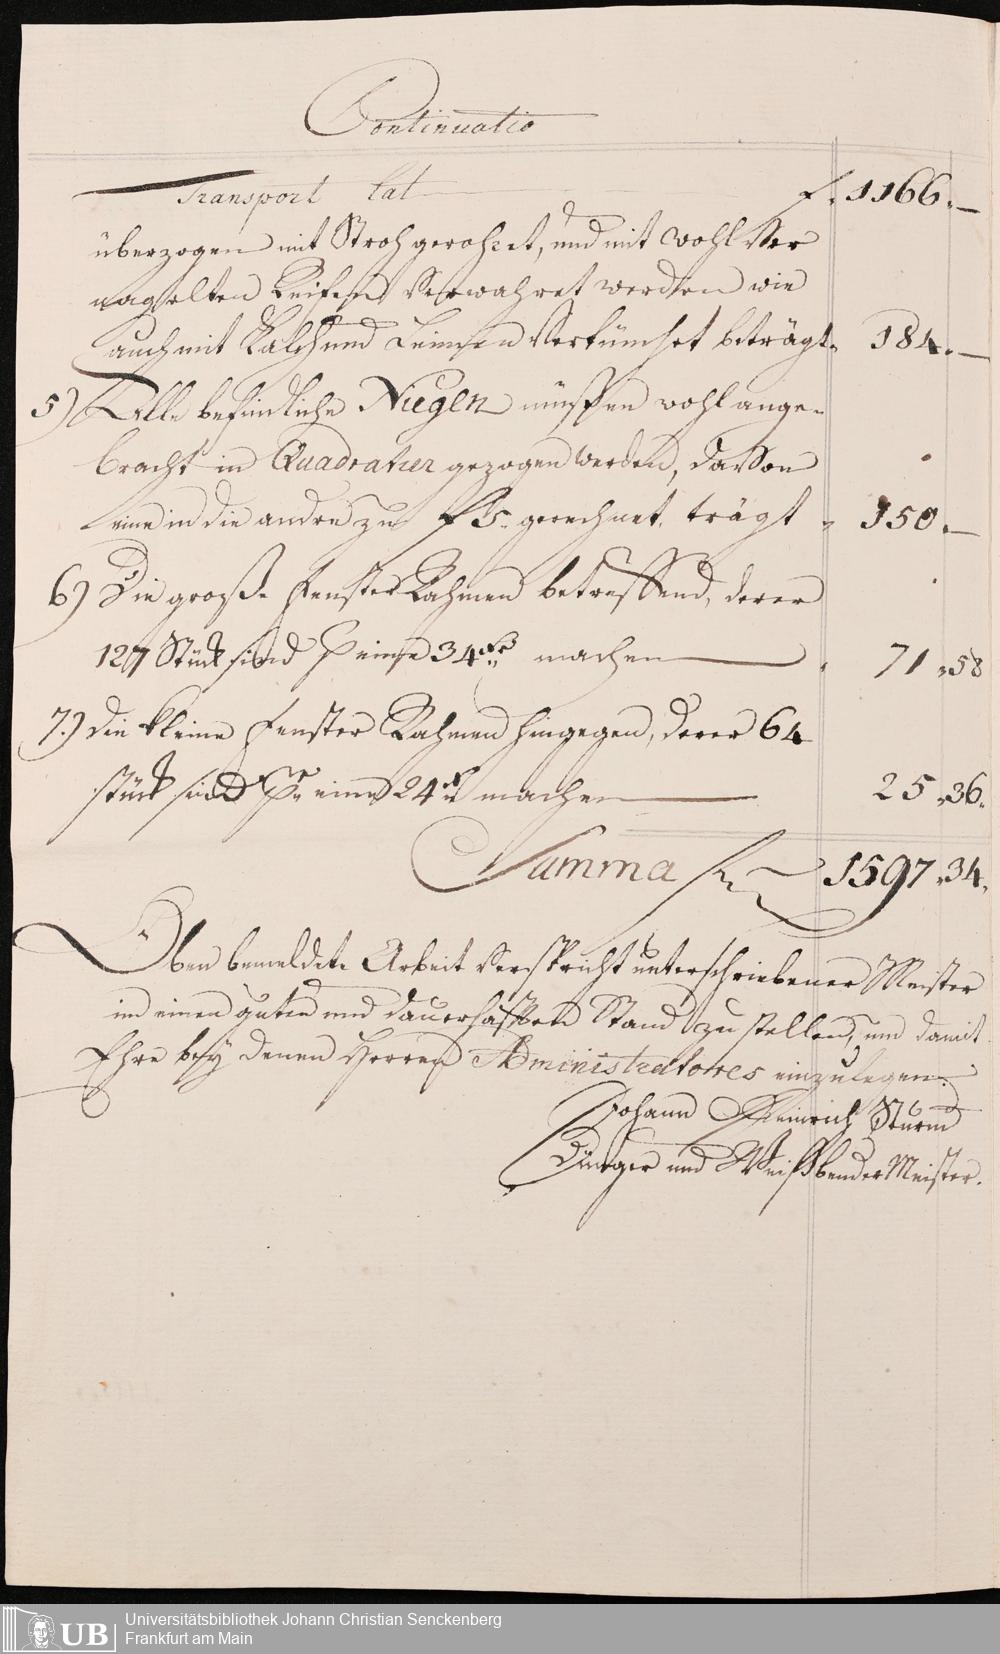 Continuatio
Transport lat f. 1166.—
überzogen mit Stroh gerohret, und mit wohl Ver
nagelten Reifen Verwahret werden wie
auch mit Kalch und Leimen Vertünchet beträgt " 184.—
5) Alle befindliche Niegen müssen wohl ange-
bracht in Quadratur gezogen werden, davon
eine in die andre zu f 5. gerechnet. trägt " 150.—
6) Die große Fenster Rahmen betreffend, derer
127 Stück sind P eine 34 xr machen " 71 " 58
7.) die kleine Fenster Rahmen hingegen, derer 64
stück sind Pr eine 24 xr machen 25 " 36.
Summa f. 1597 " 34.
Oben bemeldete Arbeit Verspricht unterschriebener Meister
in einen guten und dauerhafften Stand zu stellen, und damit
Ehre bey denen Herren Administratores einzulegen.
Johann Heinrich Sturm
Burger und Weißbender Meister.
UB Universitätsbibliothek Johann Christian Senckenberg
Frankfurt am Main